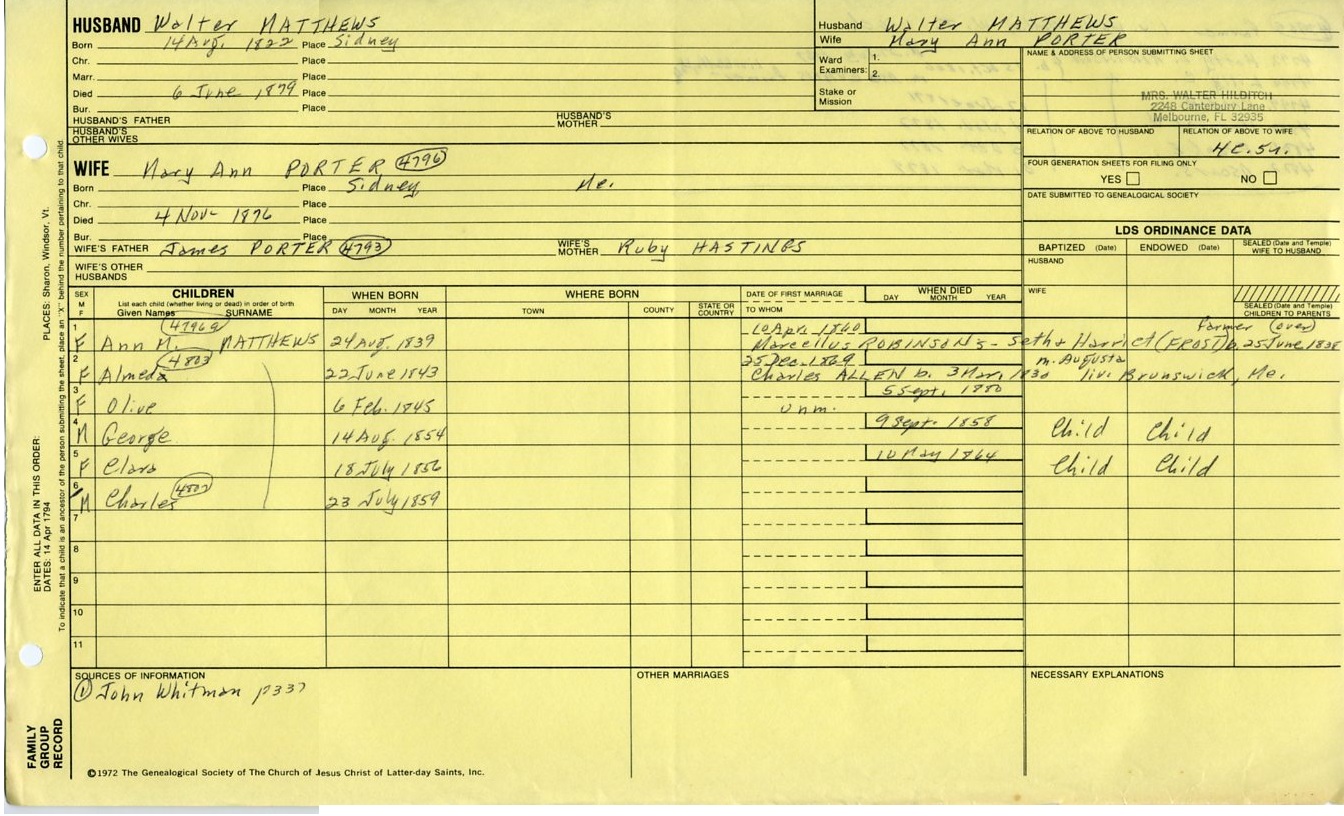 HUSBAND Walter MATTHEWS
Born 14 Aug. 1822 Place Sidney
Chr. Place
Marr. Place
Died 6 June 1879 Place
Bur. Place
HUSBAND'S FATHER HUSBAND'S MOTHER
HUSBAND'S OTHER WIVES
WIFE Mary Ann PORTER 4796
Born Place Sidney Me.
Chr. Place
Died 4 Nov - 1876 Place
Bur. Place
WIFE'S FATHER James PORTER 4793 WIFE'S MOTHER Ruby HASTINGS
WIFE'S OTHER HUSBANDS
Husband Walter MATTHEWS
Wife Mary Ann PORTER
Ward Examiners: 1. 2.
Stake or Mission
NAME & ADDRESS OF PERSON SUBMITTING SHEET
MRS. WALTER HILDITCH
2248 Canterbury Lane
Melbourne, FL 32935
RELATION OF ABOVE TO HUSBAND RELATION OF ABOVE TO WIFE
4c.5r.
FOUR GENERATION SHEETS FOR FILING ONLY
YES NO
DATE SUBMITTED TO GENEALOGICAL SOCIETY
LDS ORDINANCE DATA
BAPTIZED (Date) ENDOWED (Date) SEALED (Date and Temple) WIFE TO HUSBAND
HUSBAND
WIFE
SEALED (Date and Temple) CHILDREN TO PARENTS
SEX M F CHILDREN List each child (whether living or dead) in order of birth Given Names SURNAME WHEN BORN DAY MONTH YEAR WHERE BORN TOWN COUNTY STATE OR COUNTRY DATE OF FIRST MARRIAGE TO WHOM WHEN DIED DAY MONTH YEAR
1 F Ann M. MATTHEWS 24 Aug. 1839 10 Apr. 1860 farmer (over)
Marcellus ROBINSON s- Seth + Harriet (FROST) b. 25 June 1838
2 F Almeda 4803 22 June 1843 25 Dec. 1869 m. Augusta
Charles ALLEN b. 3 Mar. 1830 liv. Brunswick, Me.
3 F Olive 6 Feb. 1845 unm. 5 Sept. 1880
4 M George 14 Aug. 1854 9 Sept. 1858 Child Child
5 F Clara 18 July 1856 10 May 1864 Child Child
6 M Charles 23 July 1859
7
8
9
10
11
SOURCES OF INFORMATION
① John Whitman p337
OTHER MARRIAGES
NECESSARY EXPLANATIONS
©1972 The Genealogical Society of The Church of Jesus Christ of Latter-day Saints, Inc.
FAMILY GROUP RECORD
ENTER ALL DATA IN THIS ORDER: PLACES: Sharon, Windsor, Vt.
DATES: 14 Apr 1794
To indicate that a child is an ancestor of the person submitting the sheet, place an "X" behind the number pertaining to that child.